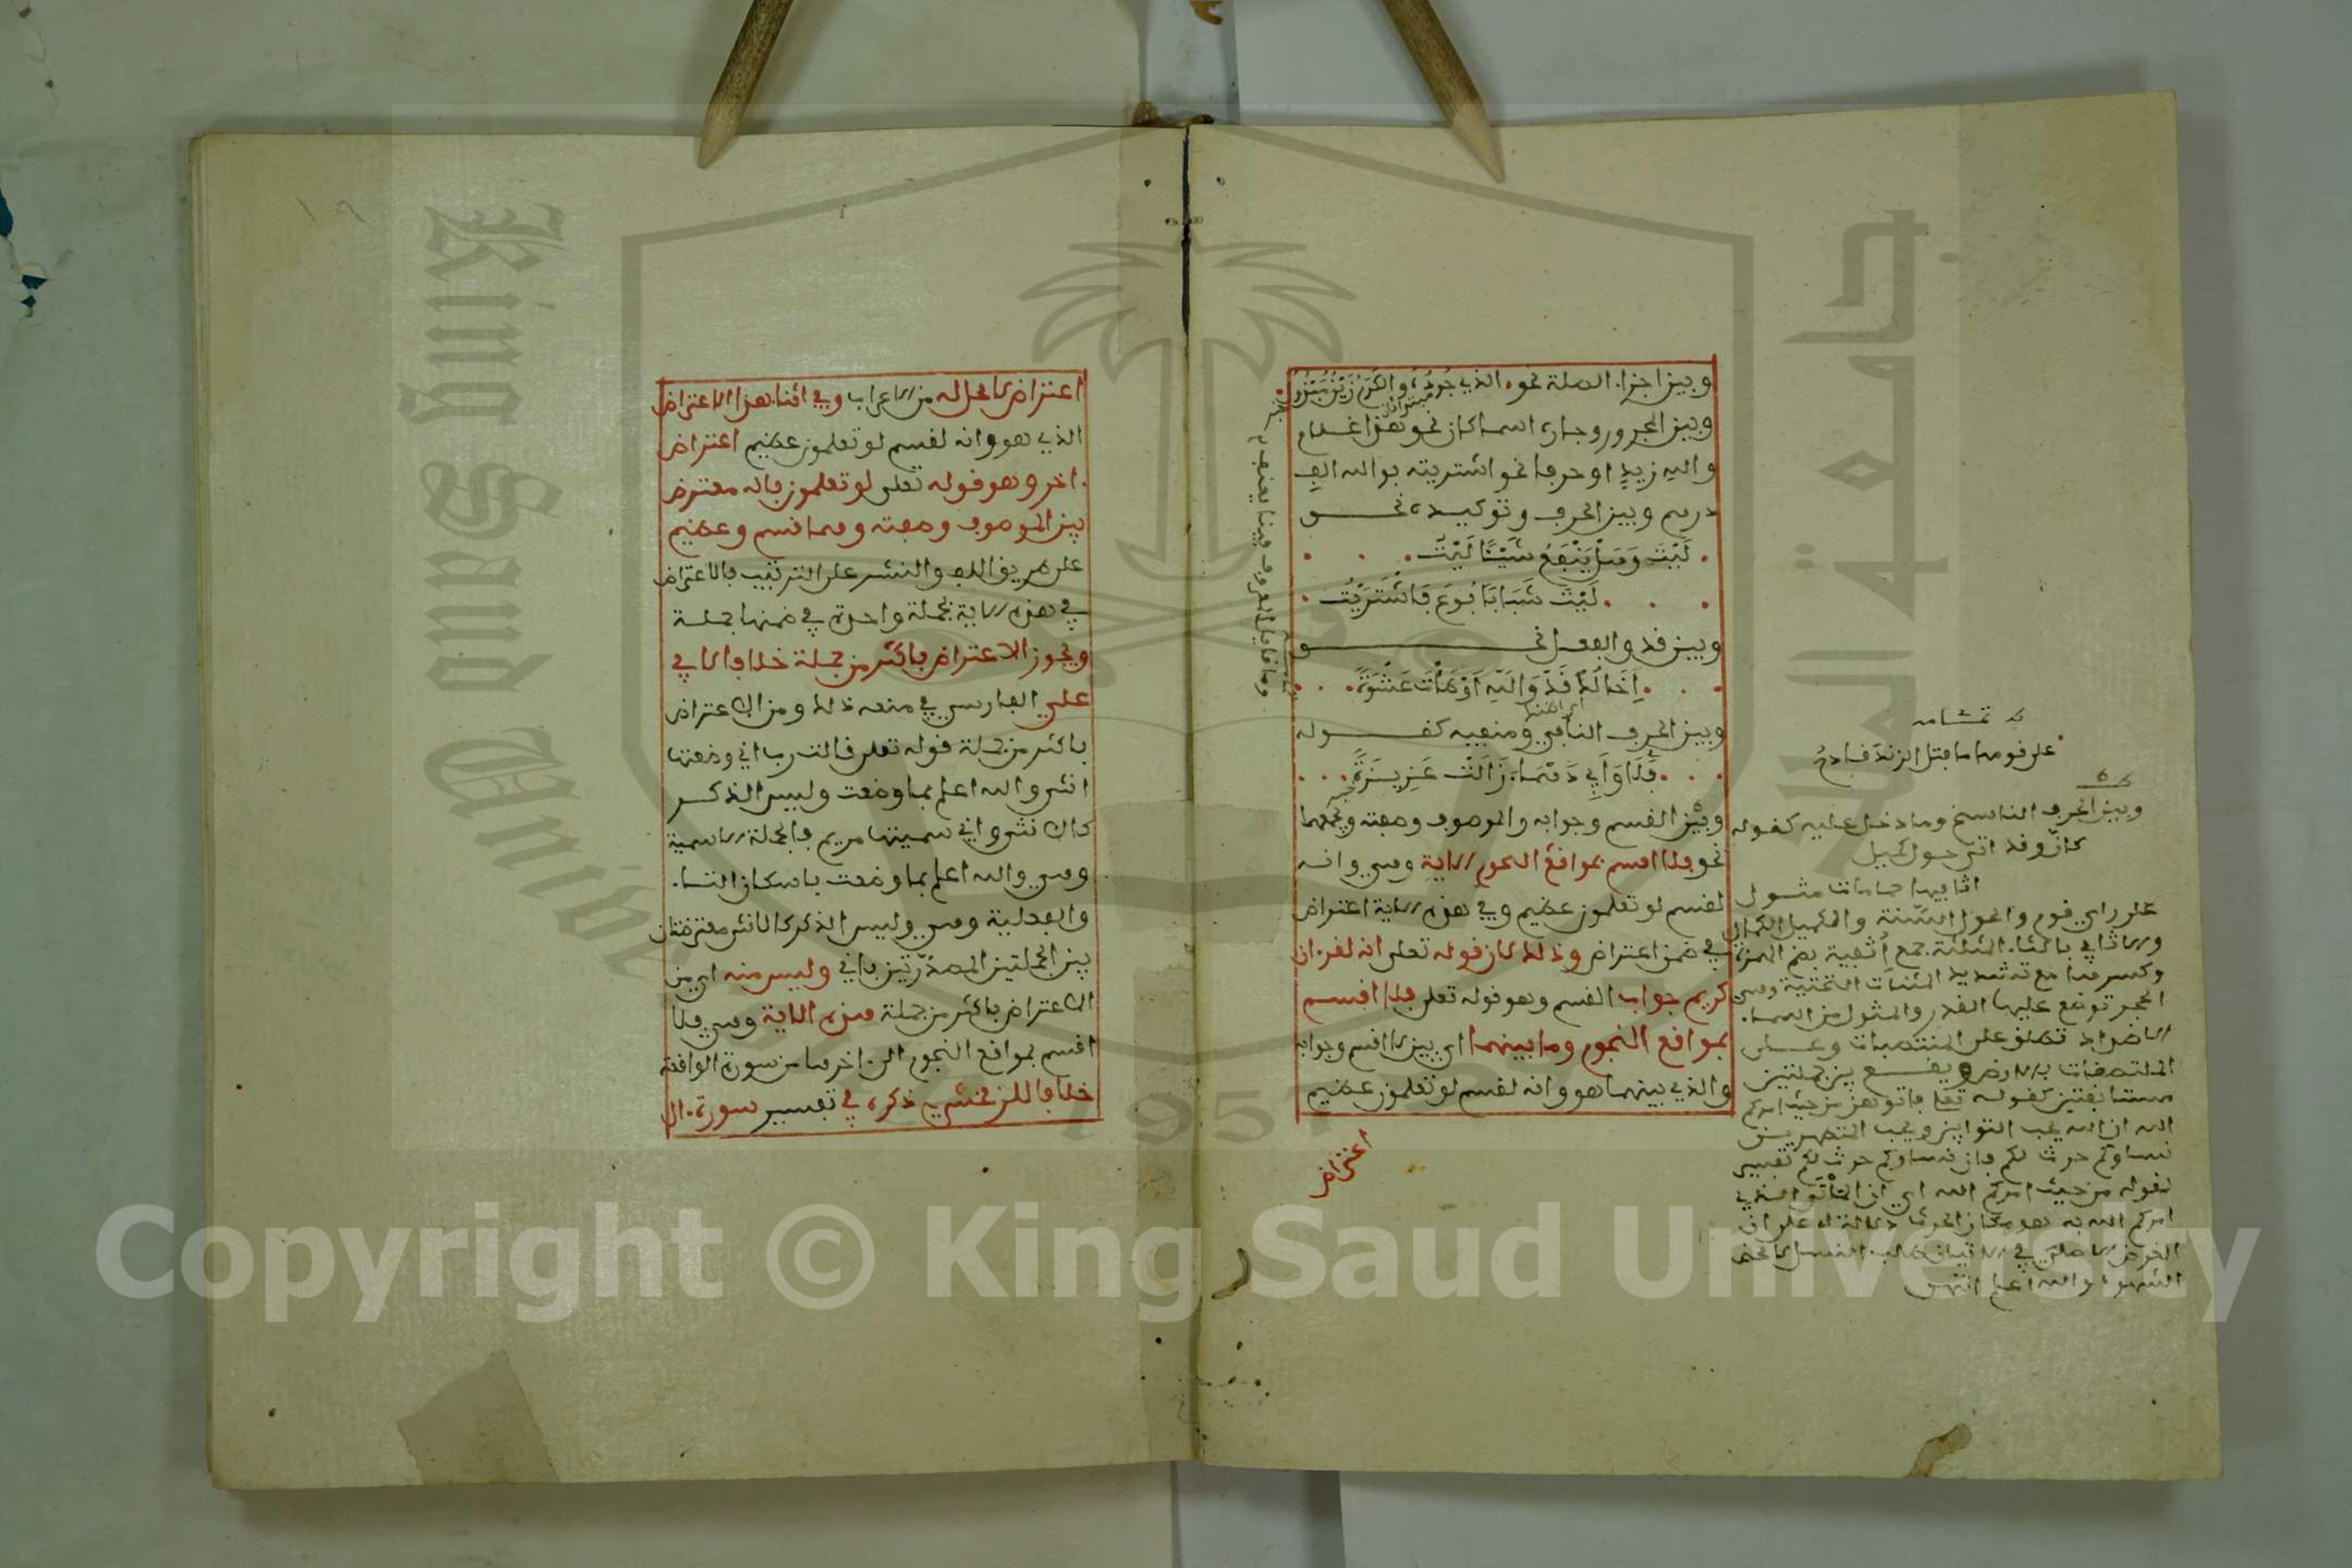 وبين اجزاء الصلة نحو الذي جوده والكرم زين مبذول
مبتدا ثان
وبين المجرور وجاره اسما كان نحو هذا غلام
والله زيد او حرفا نحو اشتريته بوالله الف
درهم وبين الحرف وتوكيده نحو
لَيْتَ وَهَلْ يَنْفَعُ شَيْئًا لَيْتُ
لَيْتَ شَبَابًا بُوعَ فَاشْتَرَيْتُ
وبين قد والفعل نحو
اَخَالِدُ قَدْ وَاللهِ اَوْطَأْتَ عَشْوَةً
وبين الحرف النافي ومنفيه كقوله
فَلَا وَأَبِي دَهْمَاءَ زَالَتْ عَزِيزَةً
وبين القسم وجوابه والموصوف وصفته ويجمعهما
نحو فلا اقسم بمواقع النجوم الاية وهي وانه
لقسم لو تعلمون عظيم وفي هذه الاية اعتراض
في ضمن اعتراض وذلك لان قوله تعلى انه لقرءان
كريم جواب القسم وهو قوله تعلى فلا اقسم
بمواقع النجوم وما بينهما اي بين لا اقسم وجوابه
والذي بينهما هو وانه لقسم لو تعلمون عظيم
اعتراض
تمامه
على قومها ما فتل الزند قادح
وبين الحرف الناسخ وما دخل عليه كقوله
كان وقد اتى حول كميل
اثافيها حمامات مثول
على راي قوم والحول السنة والكميل الكامل
والاثافي بالثاء المثلثة جمع أثفية بضم الهمزة
وكسرها مع تشديد المثنات التحتية وهي
الحجر توضع عليها القدر والمثول من الاسماء
الاضداد تطلق على المنتصبات وعلى
الملتصقات بالارض ويقع بين جملتين
مستانفتين كقوله تعلى فاتوهن من حيث امركم
الله ان الله يحب التوابين ويحب المتطهرين
نساوكم حرث لكم فان نساوكم حرث لكم تفسير
لقوله من حيث امركم الله اي ان المأتى الذي
امركم الله به هو مكان الحرث دلالة على ان
الغرض الاصلي في الاتيان طلب النسل لا محض
الشهوة والله اعلم انتهى
اعتراض لا محل له من الاعراب وفي اثناء هذا الاعتراض
الذي هو وانه لقسم لو تعلمون عظيم اعتراض
اخر وهو قوله تعلى لو تعلمون فانه معترض
بين الموصوف وصفته وهما قسم وعظيم
على طريق اللف والنشر على الترتيب فالاعتراض
في هذه الاية بجملة واحدة في ضمنها جملة
ويجوز الاعتراض باكثر من جملة خلافا لابي
علي الفارسي في منعه ذلك ومن الاعتراض
باكثر من جملة قوله تعلى قالت رب اني وضعتها
انثى والله اعلم بما وضعت وليس الذكر
كالانثى واني سميتها مريم فالجملة الاسمية
وهي والله اعلم بما وضعت باسكان التاء
والفعلية وهي وليس الذكر كالانثى معترضتان
بين الجملتين المصدرتين باني وليس منه اي من
الاعتراض باكثر من جملة هذه الاية وهي فلا
اقسم بمواقع النجوم الى اخرها من سورة الواقعة
خلافا للزمخشري ذكره في تفسير سورة ال